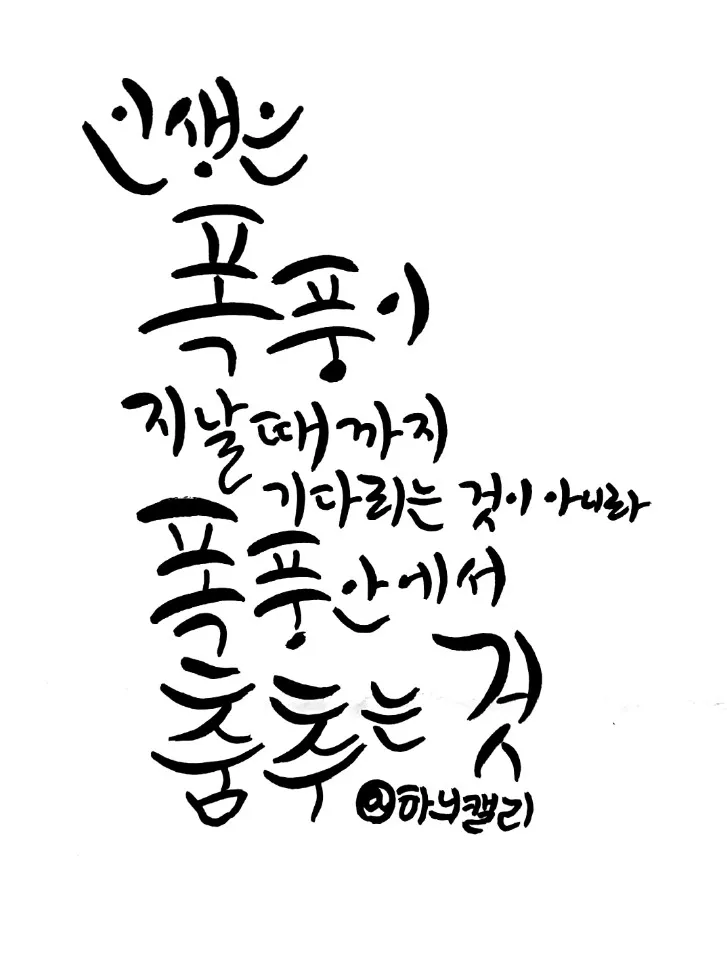 인생은
폭풍이
지날때까지
기다리는 것이 아니라
폭풍안에서
춤추는 것
@하늬캘리